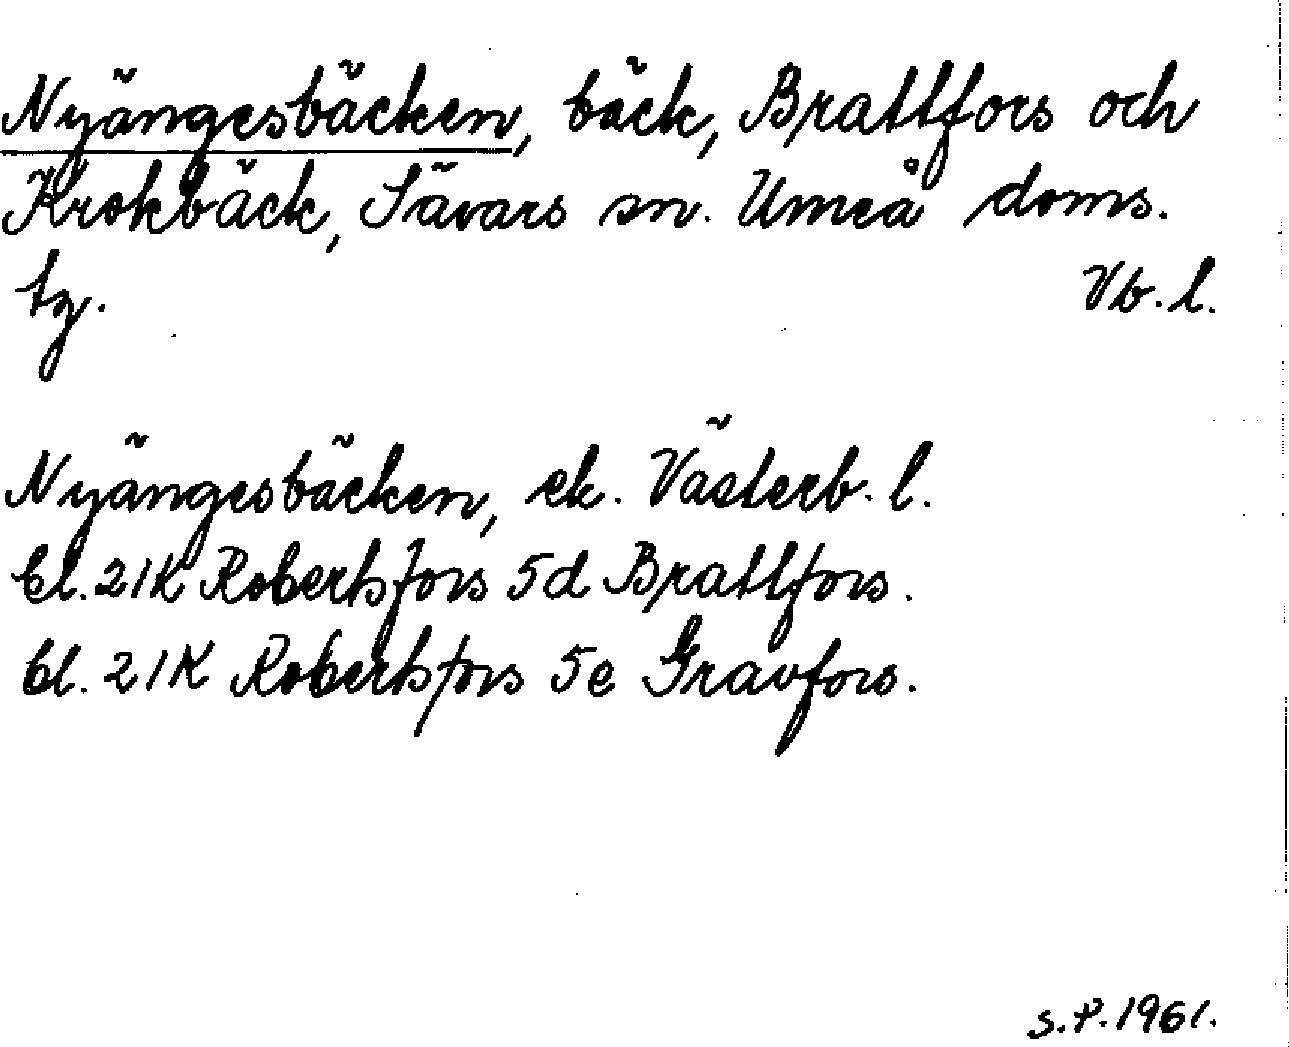 Nyängesbäcken, bäck, Brattfors och
Krokbäck, Sävars sn. Umeå doms.
tg. Vb. l.
Nyängesbäcken, ek. Västerb. l.
Bl. 21K Robertsfors 5d Brattfors.
Bl. 21K Robertsfors 5e Gravfors.
S.P. 1961.